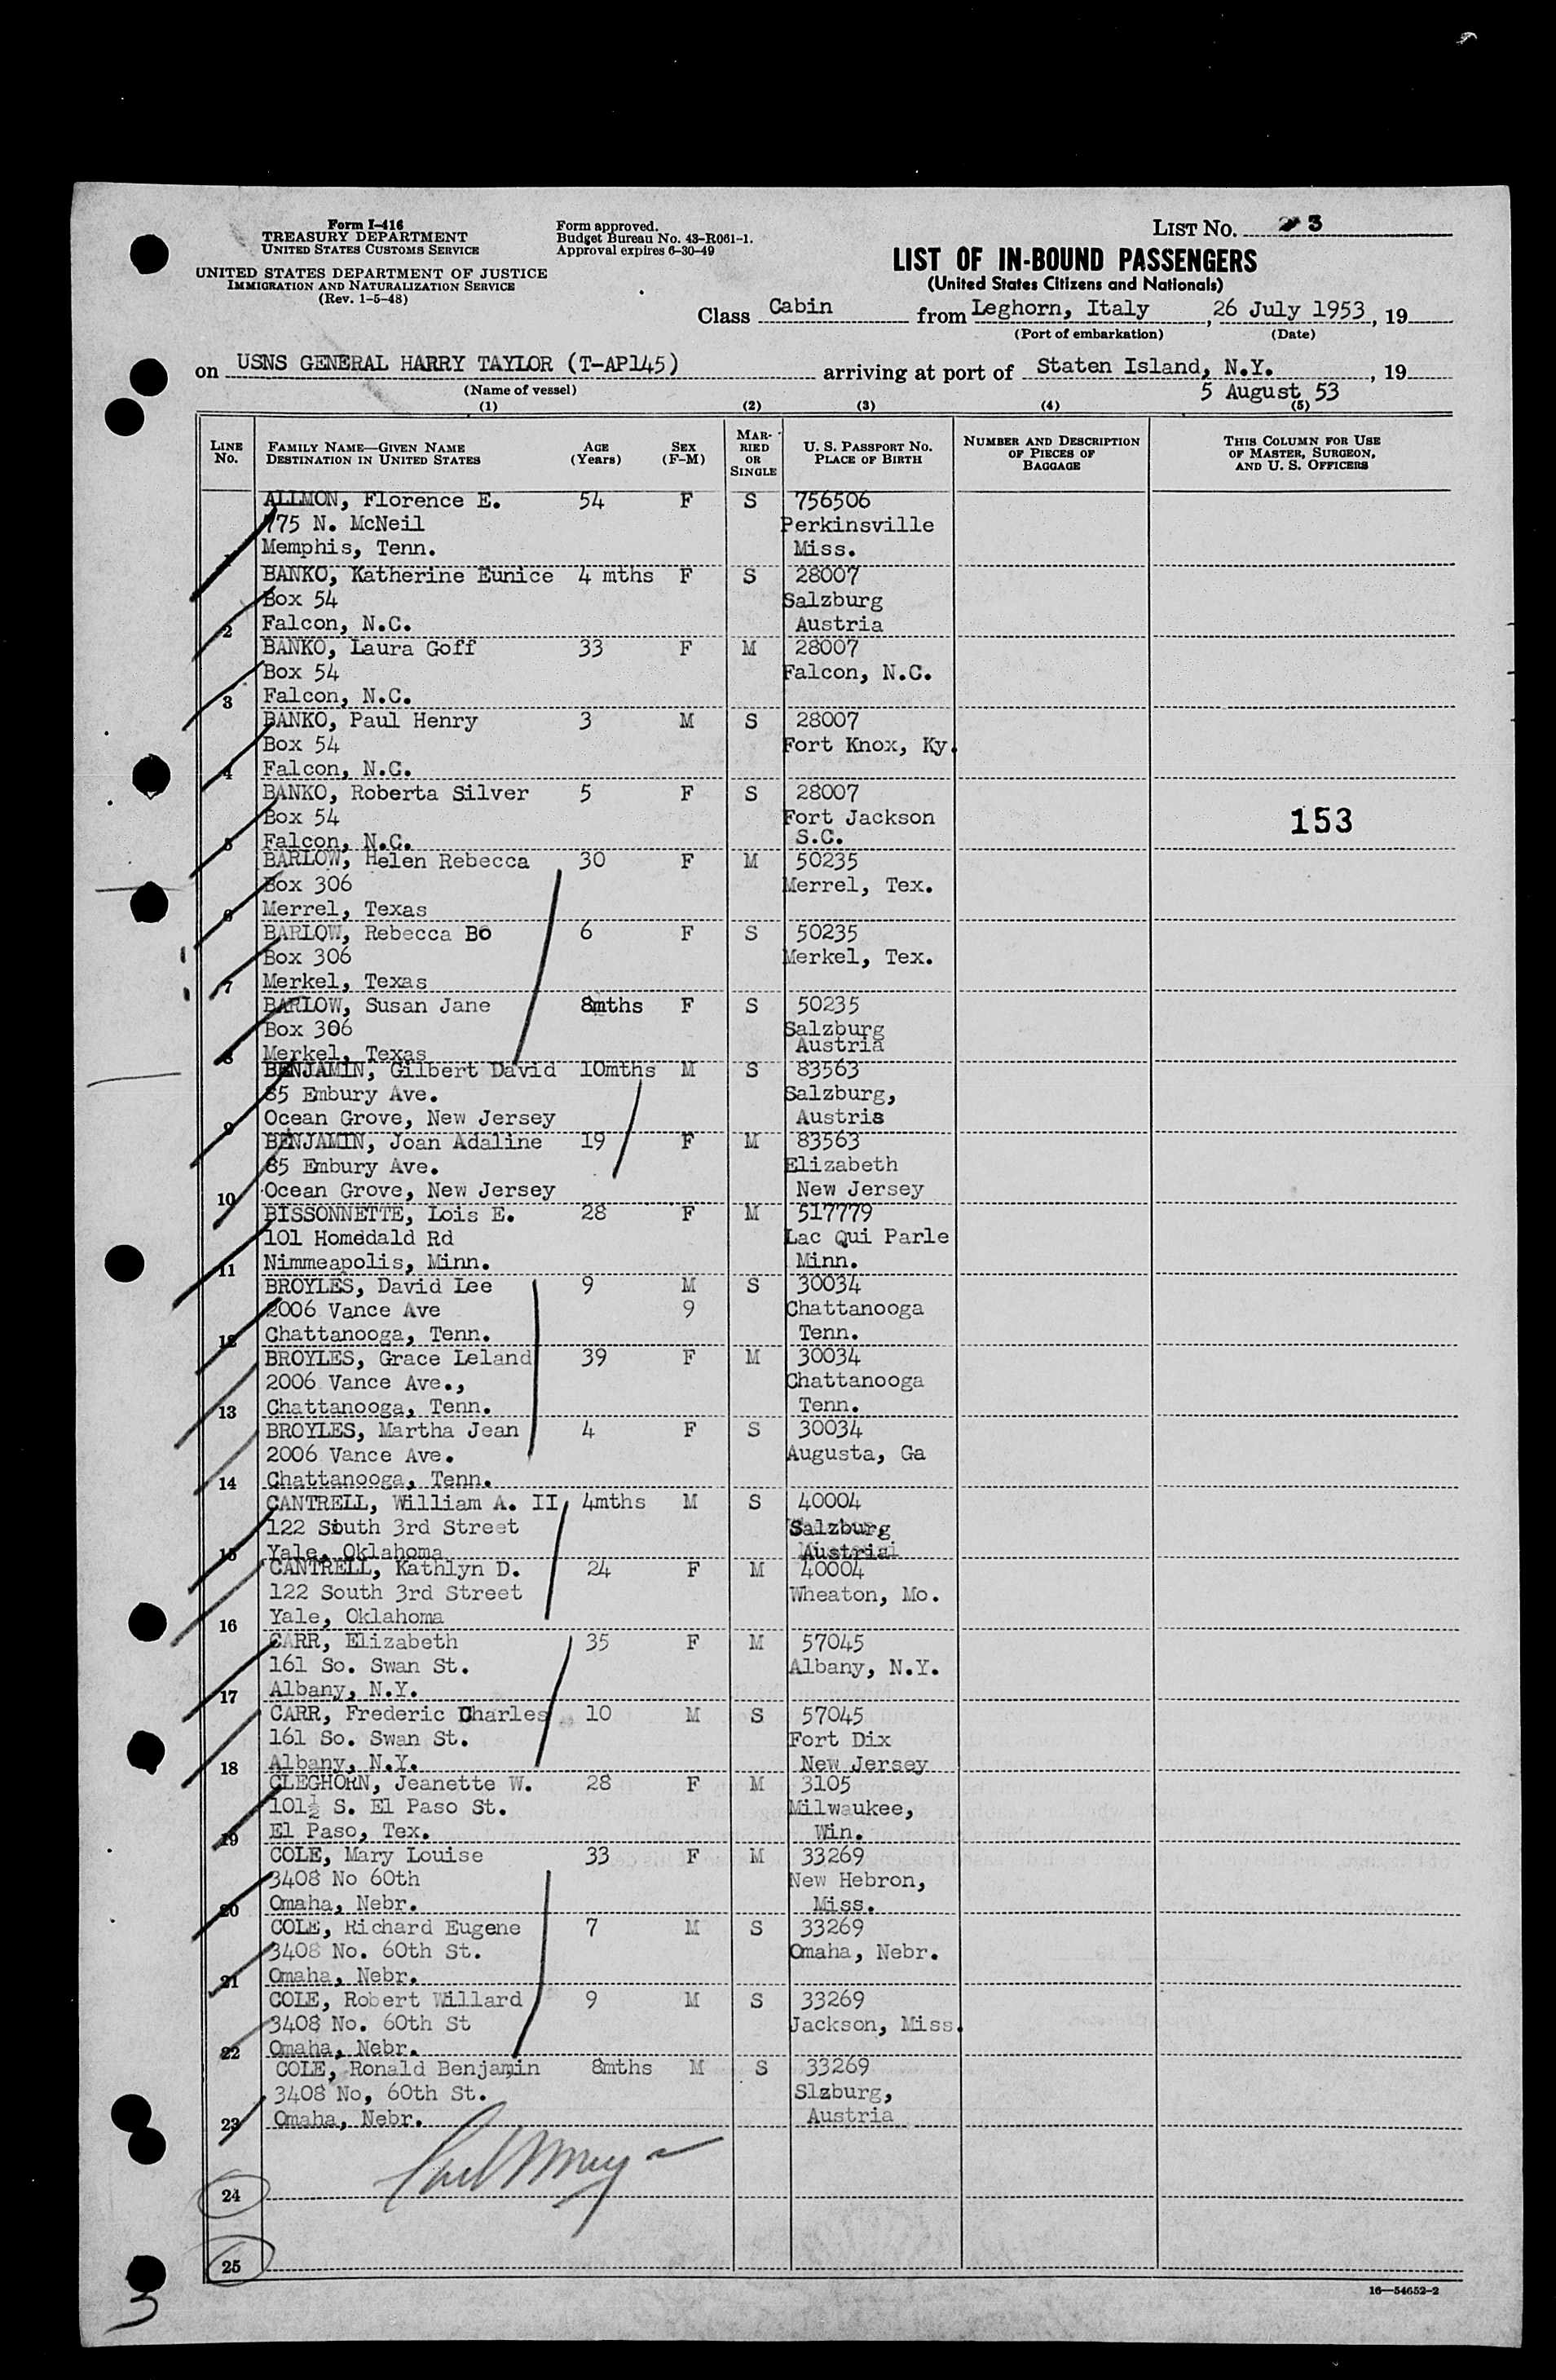 Form I-416
TREASURY DEPARTMENT
UNITED STATES CUSTOMS SERVICE
UNITED STATES DEPARTMENT OF JUSTICE
IMMIGRATION AND NATURALIZATION SERVICE
(Rev. 1-5-48)
Form approved.
Budget Bureau No. 43-R061-1.
Approval expires 6-30-49
LIST No. 3
LIST OF IN-BOUND PASSENGERS
(United States Citizens and Nationals)
Class Cabin from Leghorn, Italy, 26 July 1953, 19
(Port of embarkation) (Date)
on USNS GENERAL HARRY TAYLOR (T-AP145) arriving at port of Staten Island, N.Y., 19
(Name of vessel) 5 August 53
(1) (2) (3) (4) (5)
LINE No. FAMILY NAME—GIVEN NAME DESTINATION IN UNITED STATES AGE (Years) SEX (F-M) MARRIED OR SINGLE U. S. PASSPORT NO. PLACE OF BIRTH NUMBER AND DESCRIPTION OF PIECES OF BAGGAGE THIS COLUMN FOR USE OF MASTER, SURGEON, AND U. S. OFFICERS
ALLMON, Florence E. 54 F S 756506
775 N. McNeil Perkinsville
1 Memphis, Tenn. Miss.
BANKO, Katherine Eunice 4 mths F S 28007
Box 54 Salzburg
2 Falcon, N.C. Austria
BANKO, Laura Goff 33 F M 28007
Box 54 Falcon, N.C.
3 Falcon, N.C.
BANKO, Paul Henry 3 M S 28007
Box 54 Fort Knox, Ky.
4 Falcon, N.C.
BANKO, Roberta Silver 5 F S 28007
Box 54 Fort Jackson 153
5 Falcon, N.C. S.C.
BARLOW, Helen Rebecca 30 F M 50235
Box 306 Merrel, Tex.
6 Merrel, Texas
BARLOW, Rebecca Bo 6 F S 50235
Box 306 Merkel, Tex.
7 Merkel, Texas
BARLOW, Susan Jane 8mths F S 50235
Box 306 Salzburg
8 Merkel, Texas Austria
BENJAMIN, Gilbert David 10mths M S 83563
85 Embury Ave. Salzburg,
9 Ocean Grove, New Jersey Austris
BENJAMIN, Joan Adaline 19 F M 83563
85 Embury Ave. Elizabeth
10 Ocean Grove, New Jersey New Jersey
BISSONNETTE, Lois E. 28 F M 517779
101 Homedald Rd Lac Qui Parle
11 Nimmeapolis, Minn. Minn.
BROYLES, David Lee 9 M S 30034
2006 Vance Ave 9 Chattanooga
12 Chattanooga, Tenn. Tenn.
BROYLES, Grace Leland 39 F M 30034
2006 Vance Ave., Chattanooga
13 Chattanooga, Tenn. Tenn.
BROYLES, Martha Jean 4 F S 30034
2006 Vance Ave. Augusta, Ga
14 Chattanooga, Tenn.
CANTRELL, William A. II 4mths M S 40004
122 South 3rd Street Salzburg
15 Yale, Oklahoma Austria
CANTRELL, Kathlyn D. 24 F M 40004
122 South 3rd Street Wheaton, Mo.
16 Yale, Oklahoma
CARR, Elizabeth 35 F M 57045
161 So. Swan St. Albany, N.Y.
17 Albany, N.Y.
CARR, Frederic Charles 10 M S 57045
161 So. Swan St. Fort Dix
18 Albany, N.Y. New Jersey
CLEGHORN, Jeanette W. 28 F M 3105
101½ S. El Paso St. Milwaukee,
19 El Paso, Tex. Win.
COLE, Mary Louise 33 F M 33269
3408 No 60th New Hebron,
20 Omaha, Nebr. Miss.
COLE, Richard Eugene 7 M S 33269
3408 No. 60th St. Omaha, Nebr.
21 Omaha, Nebr.
COLE, Robert Willard 9 M S 33269
3408 No. 60th St Jackson, Miss.
22 Omaha, Nebr.
COLE, Ronald Benjamin 8mths M S 33269
3408 No, 60th St. Slzburg,
23 Omaha, Nebr. Austria
24
25
16—54652-2
3